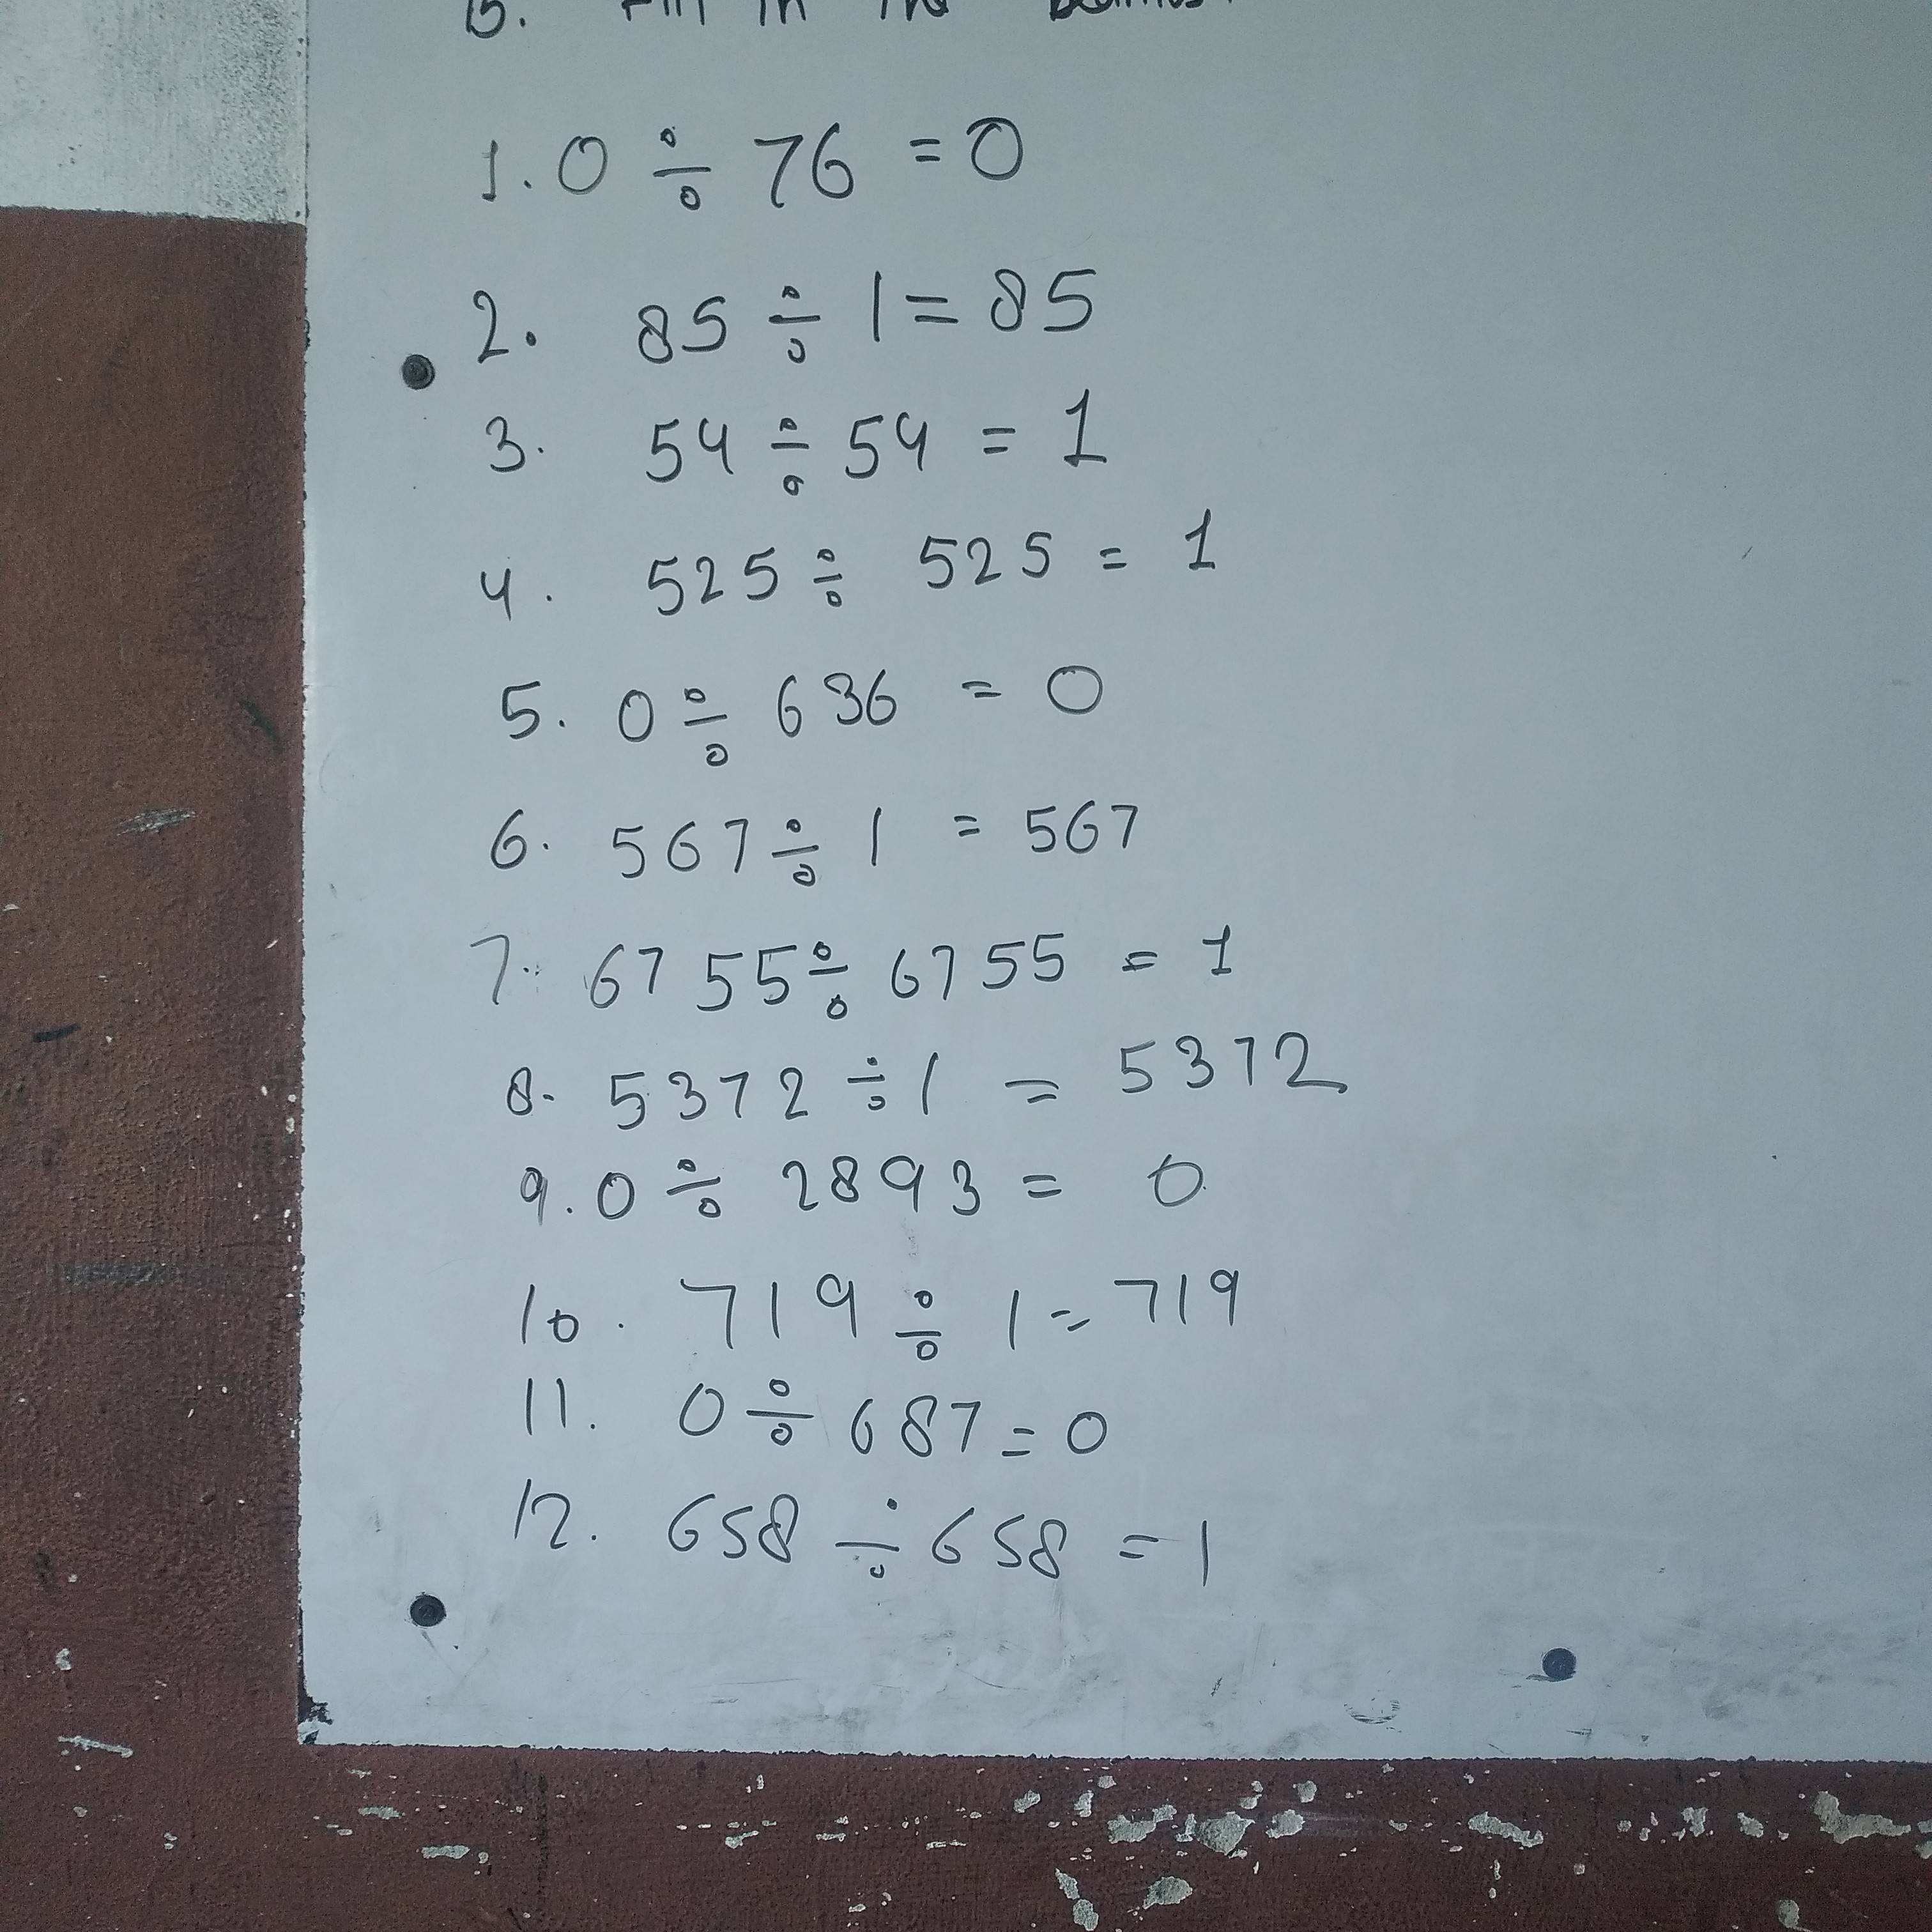 B. Fill in the
1. 0 ÷ 76 = 0
2. 85 ÷ 1 = 85
3. 54 ÷ 54 = 1
4. 525 ÷ 525 = 1
5. 0 ÷ 636 = 0
6. 567 ÷ 1 = 567
7. 6755 ÷ 6755 = 1
8. 5372 ÷ 1 = 5372
9. 0 ÷ 2893 = 0
10. 719 ÷ 1 = 719
11. 0 ÷ 687 = 0
12. 658 ÷ 658 = 1